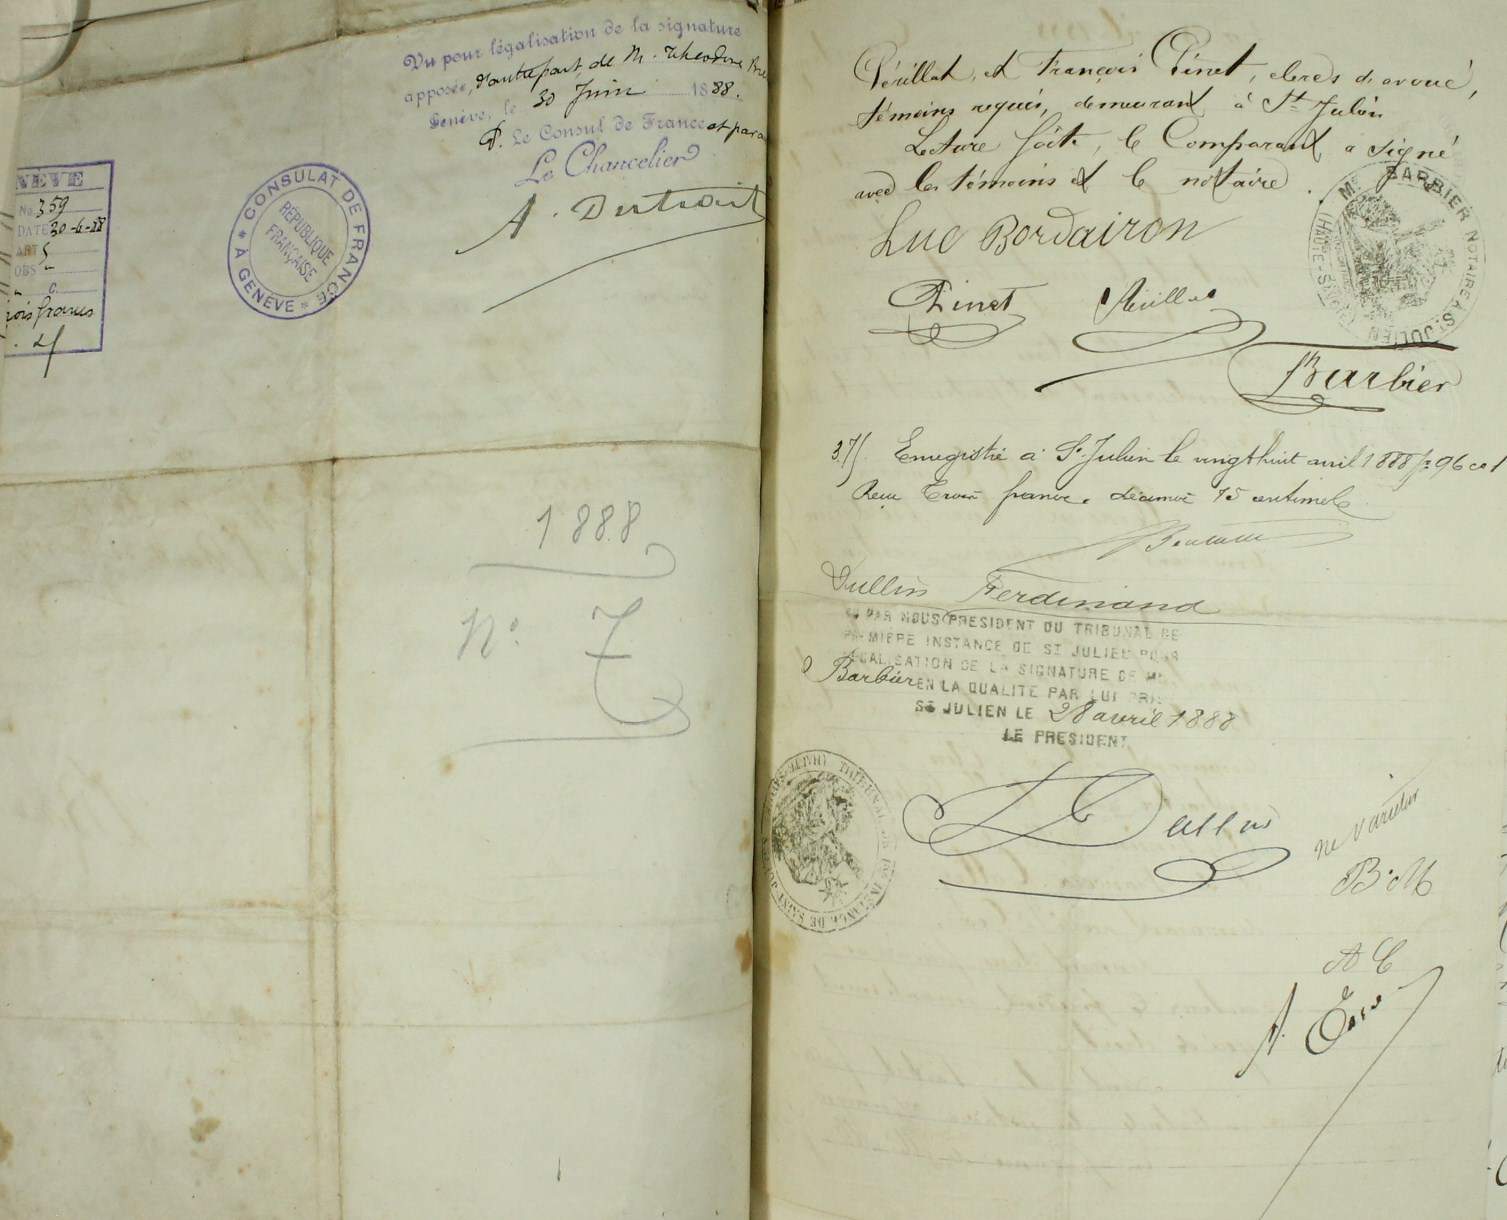 Vu pour légalisation de la signature
apposée, d'autre part, de M. Theodore
Genève, le 30 Juin 1888.
P. Le Consul de France et par
Le Chancelier
A. Dutroit
NEVE
No 359
DATE 30-6-88
ART 5
OBS
C.
francs
CONSULAT DE FRANCE
À GENÈVE
RÉPUBLIQUE
FRANÇAISE
1888
No. 7
Périllat, et François Pinet, clercs d'avoué,
témoins requis, demeurant à St Julien
Lecture faite, le Comparant a signé
avec les témoins et le notaire.
Luc Bordairon
Pinet Périllat
Barbier
Me BARBIER NOTAIRE A St JULIEN
(HAUTE-SAVOIE)
37/. Enregistré à St Julien le vingt huit avril 1888 fo 96 c 1
Reçu Trois francs, décimes 75 centimes
Dullin Ferdinand
VU PAR NOUS PRESIDENT DU TRIBUNAL DE
PREMIÈRE INSTANCE DE ST JULIEN POUR
LÉGALISATION DE LA SIGNATURE DE Mr
Barbier EN LA QUALITÉ PAR LUI PRISE
ST JULIEN LE 28 avril 1888
LE PRESIDENT
TRIBUNAL DE 1re INSTANCE DE SAINT-JULIEN
Dullin
ne varietur
B. M
A C